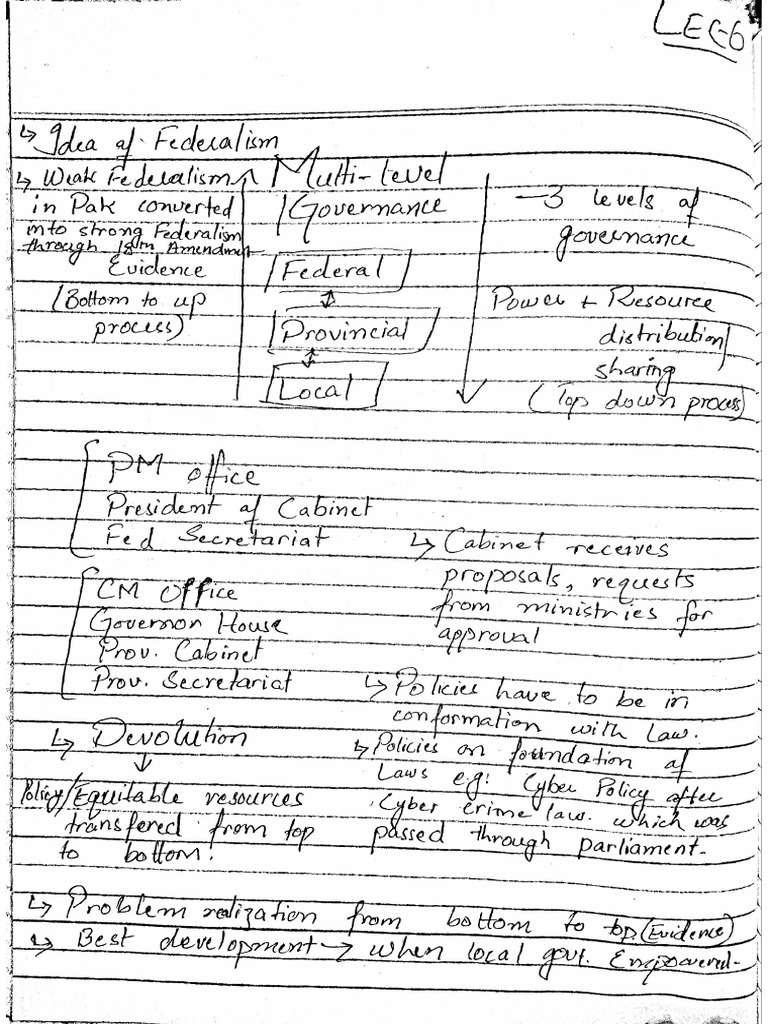 LEC-6
↳ Idea of Federalism
↳ Weak Federalism
in Pak converted
into strong Federalism
through 18th Amendment
Evidence
(Bottom to up
process)
Multi-level
Governance
Federal
↕
Provincial
↕
Local
– 3 levels of
governance
Power + Resource
distribution/
sharing
(Top down process)
PM office
President of Cabinet
Fed Secretariat
↳ Cabinet receives
proposals, requests
from ministries for
approval
CM Office
Governor House
Prov. Cabinet
Prov. Secretariat
↳ Policies have to be in
conformation with law.
↳ Devolution
↓
Policy/Equitable resources
transfered from top
to bottom.
↳ Policies on foundation of
Laws e.g: Cyber Policy after
Cyber crime law. which was
passed through parliament-
↳ Problem realization from bottom to top (Evidence)
↳ Best development → when local govt. Empowered-